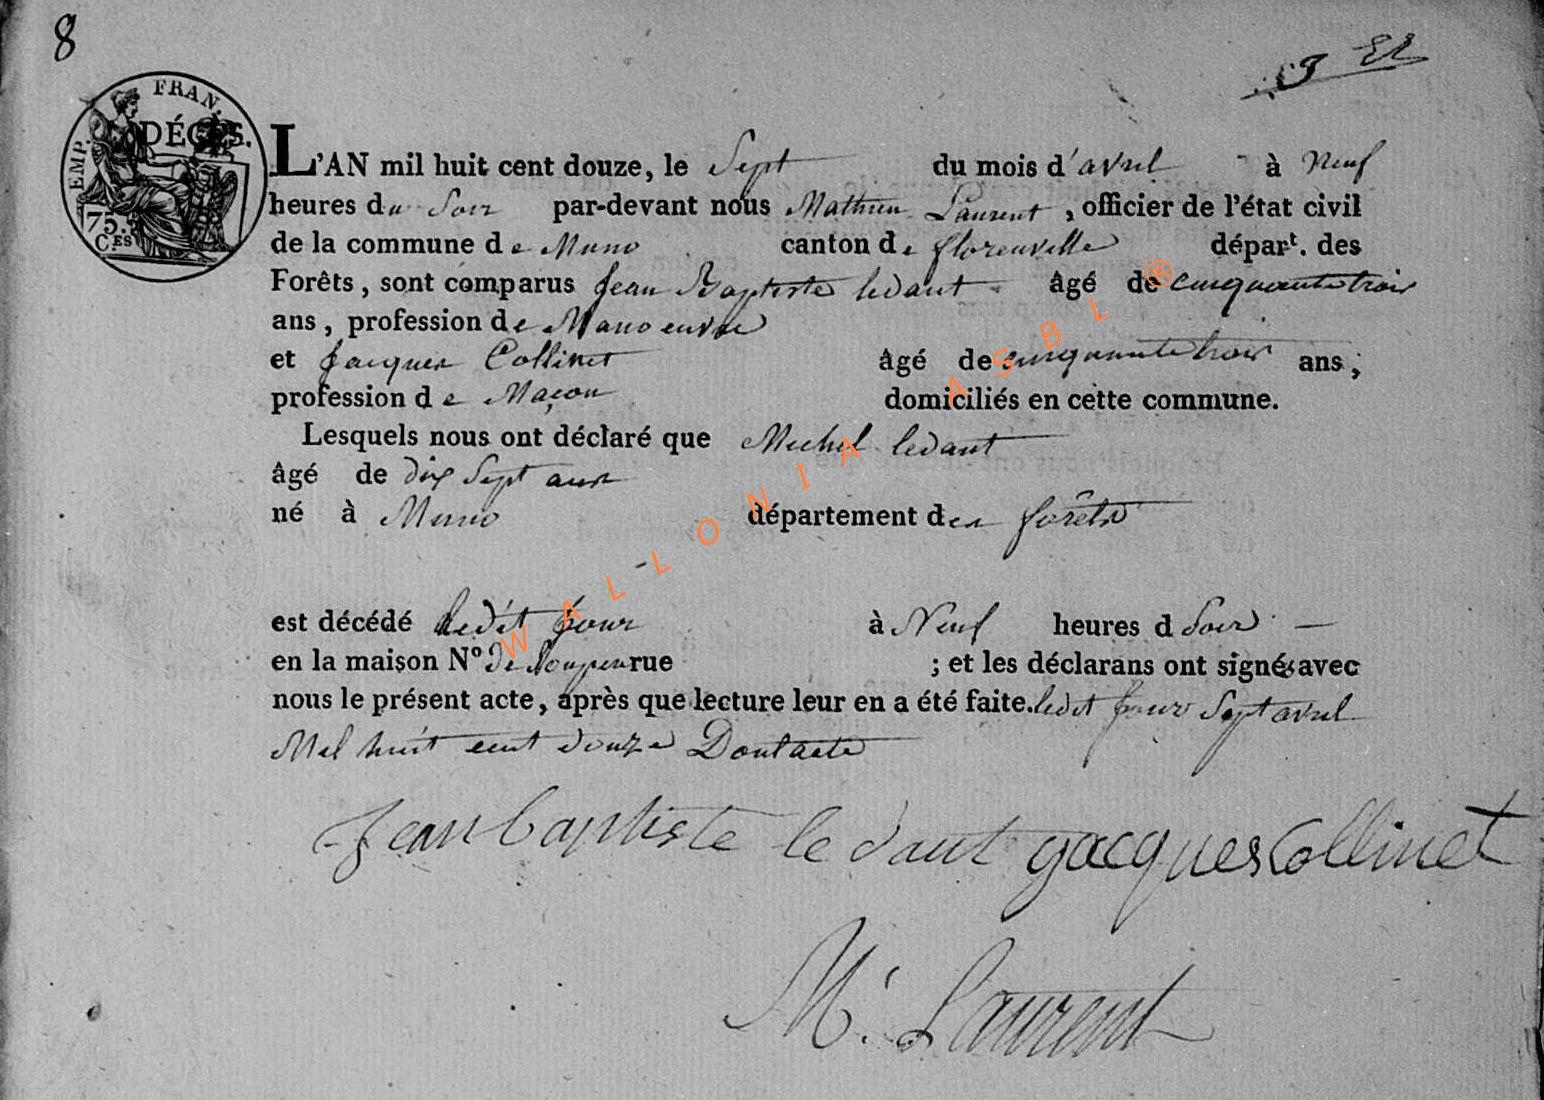 8
3 El
EMP. FRAN.
DÉCÈS.
75.
C.ES
L'AN mil huit cent douze, le Sept du mois d'avril à Neuf
heures du Soir par-devant nous Mathieu Laurent, officier de l'état civil
de la commune de Muno canton de florenville dépar.t des
Forêts, sont comparus Jean Baptiste ledant âgé de cinquante trois
ans, profession de Manoeuvre
et Jacques Collinet âgé de cinquante trois ans,
profession de Maçon domiciliés en cette commune.
Lesquels nous ont déclaré que Michel ledant
âgé de dix Sept ans
né à Muno département des forêts
est décédé ledit jour à Neuf heures d Soir —
en la maison N.o de rue ; et les déclarans ont signés avec
nous le présent acte, après que lecture leur en a été faite. ledit jour Sept avril
Mil huit cent douze Dont acte
Jean baptiste le dant jacques Collinet
M. Laurent
WALLONIA ASBL ®